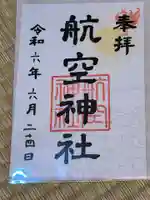 奉拝
航空神社
令和六年六月二十四日